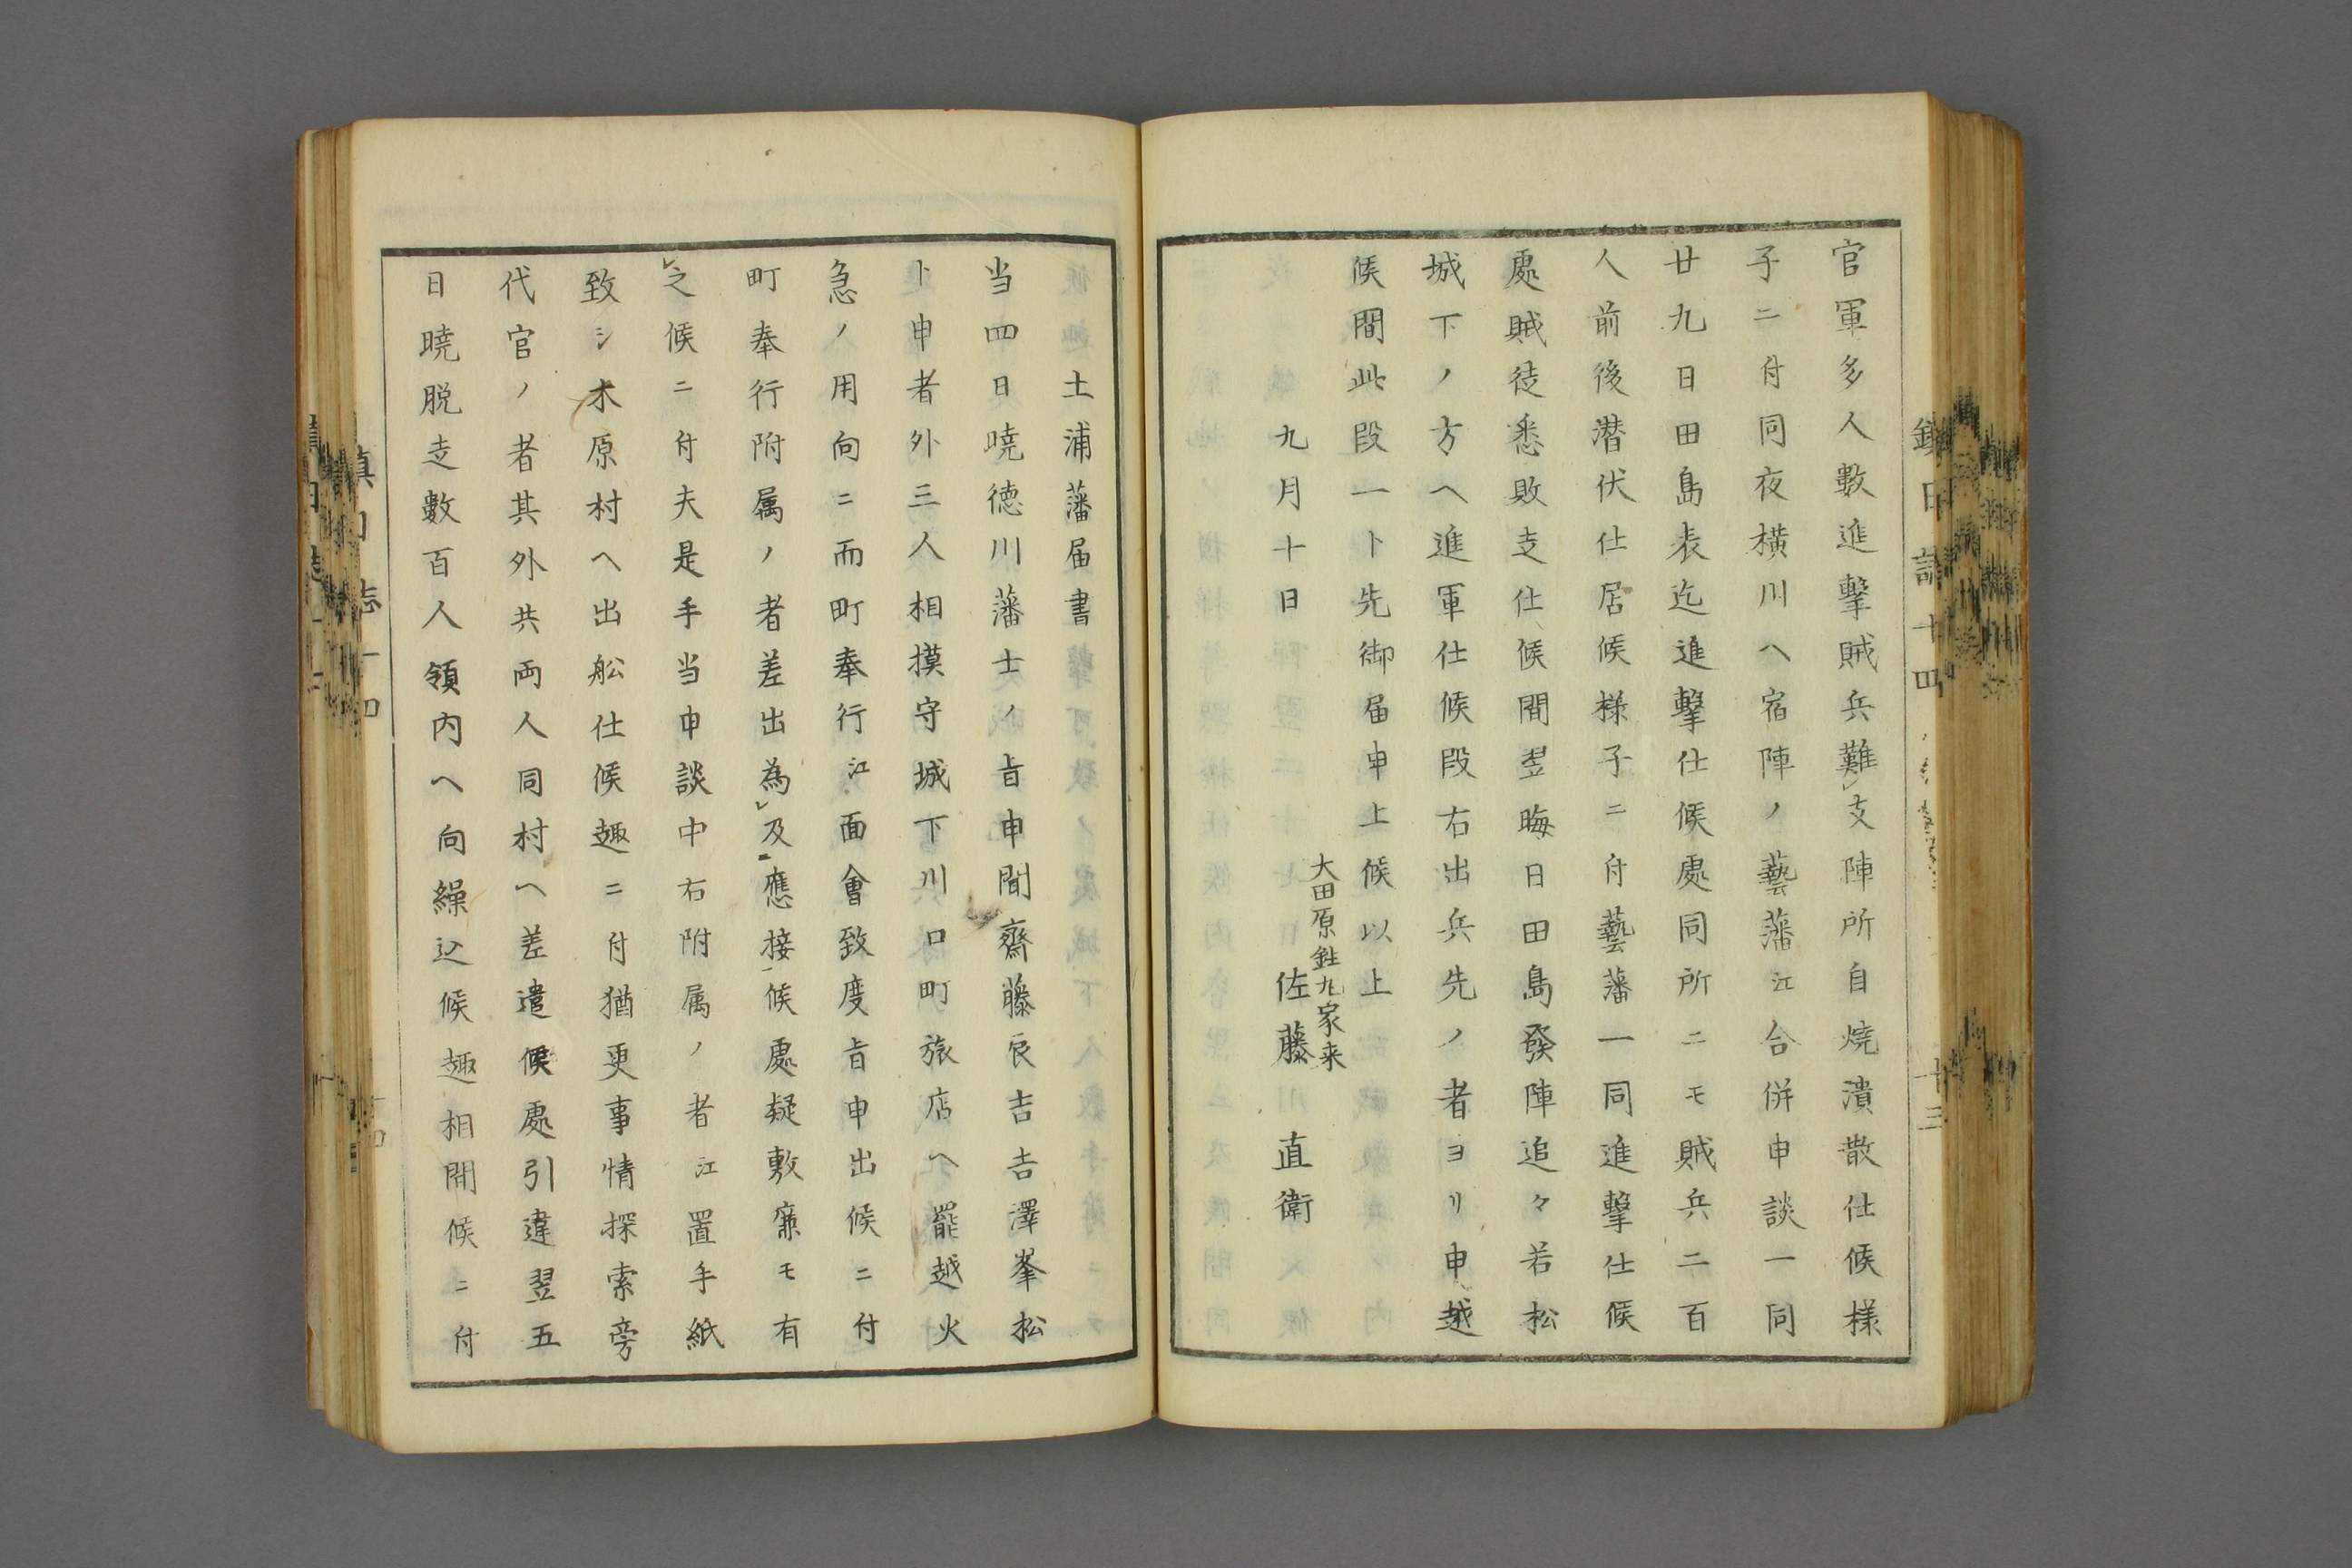 官軍多人數進擊賊兵難レ支陣所自燒潰散仕候様
子ニ付同夜横川ヘ宿陣ノ藝藩江合併申談一同
廿九日田島表迄進擊仕候處同所ニモ賊兵二百
人前後潜伏仕居候様子ニ付藝藩一同進擊仕候
處賊徒悉敗走仕候間翌晦日田島發陣追々若松
城下ノ方ヘ進軍仕候段右出兵先ノ者ヨリ申越
候間此段一ト先御届申上候以上
九月十日
大田原鉎九家来
佐藤直衛
土浦藩届書
当四日曉徳川藩士ノ旨申聞齋藤良吉吉澤峯松
ト申者外三人相摸守城下川口町旅店ヘ罷越火
急ノ用向ニ而町奉行江面會致度旨申出候ニ付
町奉行附属ノ者差出為レ及二應接一候處疑敷廉モ有
レ之候ニ付夫是手当申談中右附属ノ者江置手紙
致シ木原村ヘ出舩仕候趣ニ付猶更事情探索旁
代官ノ者其外共両人同村ヘ差遣候處引違翌五
日曉脱走數百人領内ヘ向繰込候趣相聞候ニ付
鎮日誌十四
十三